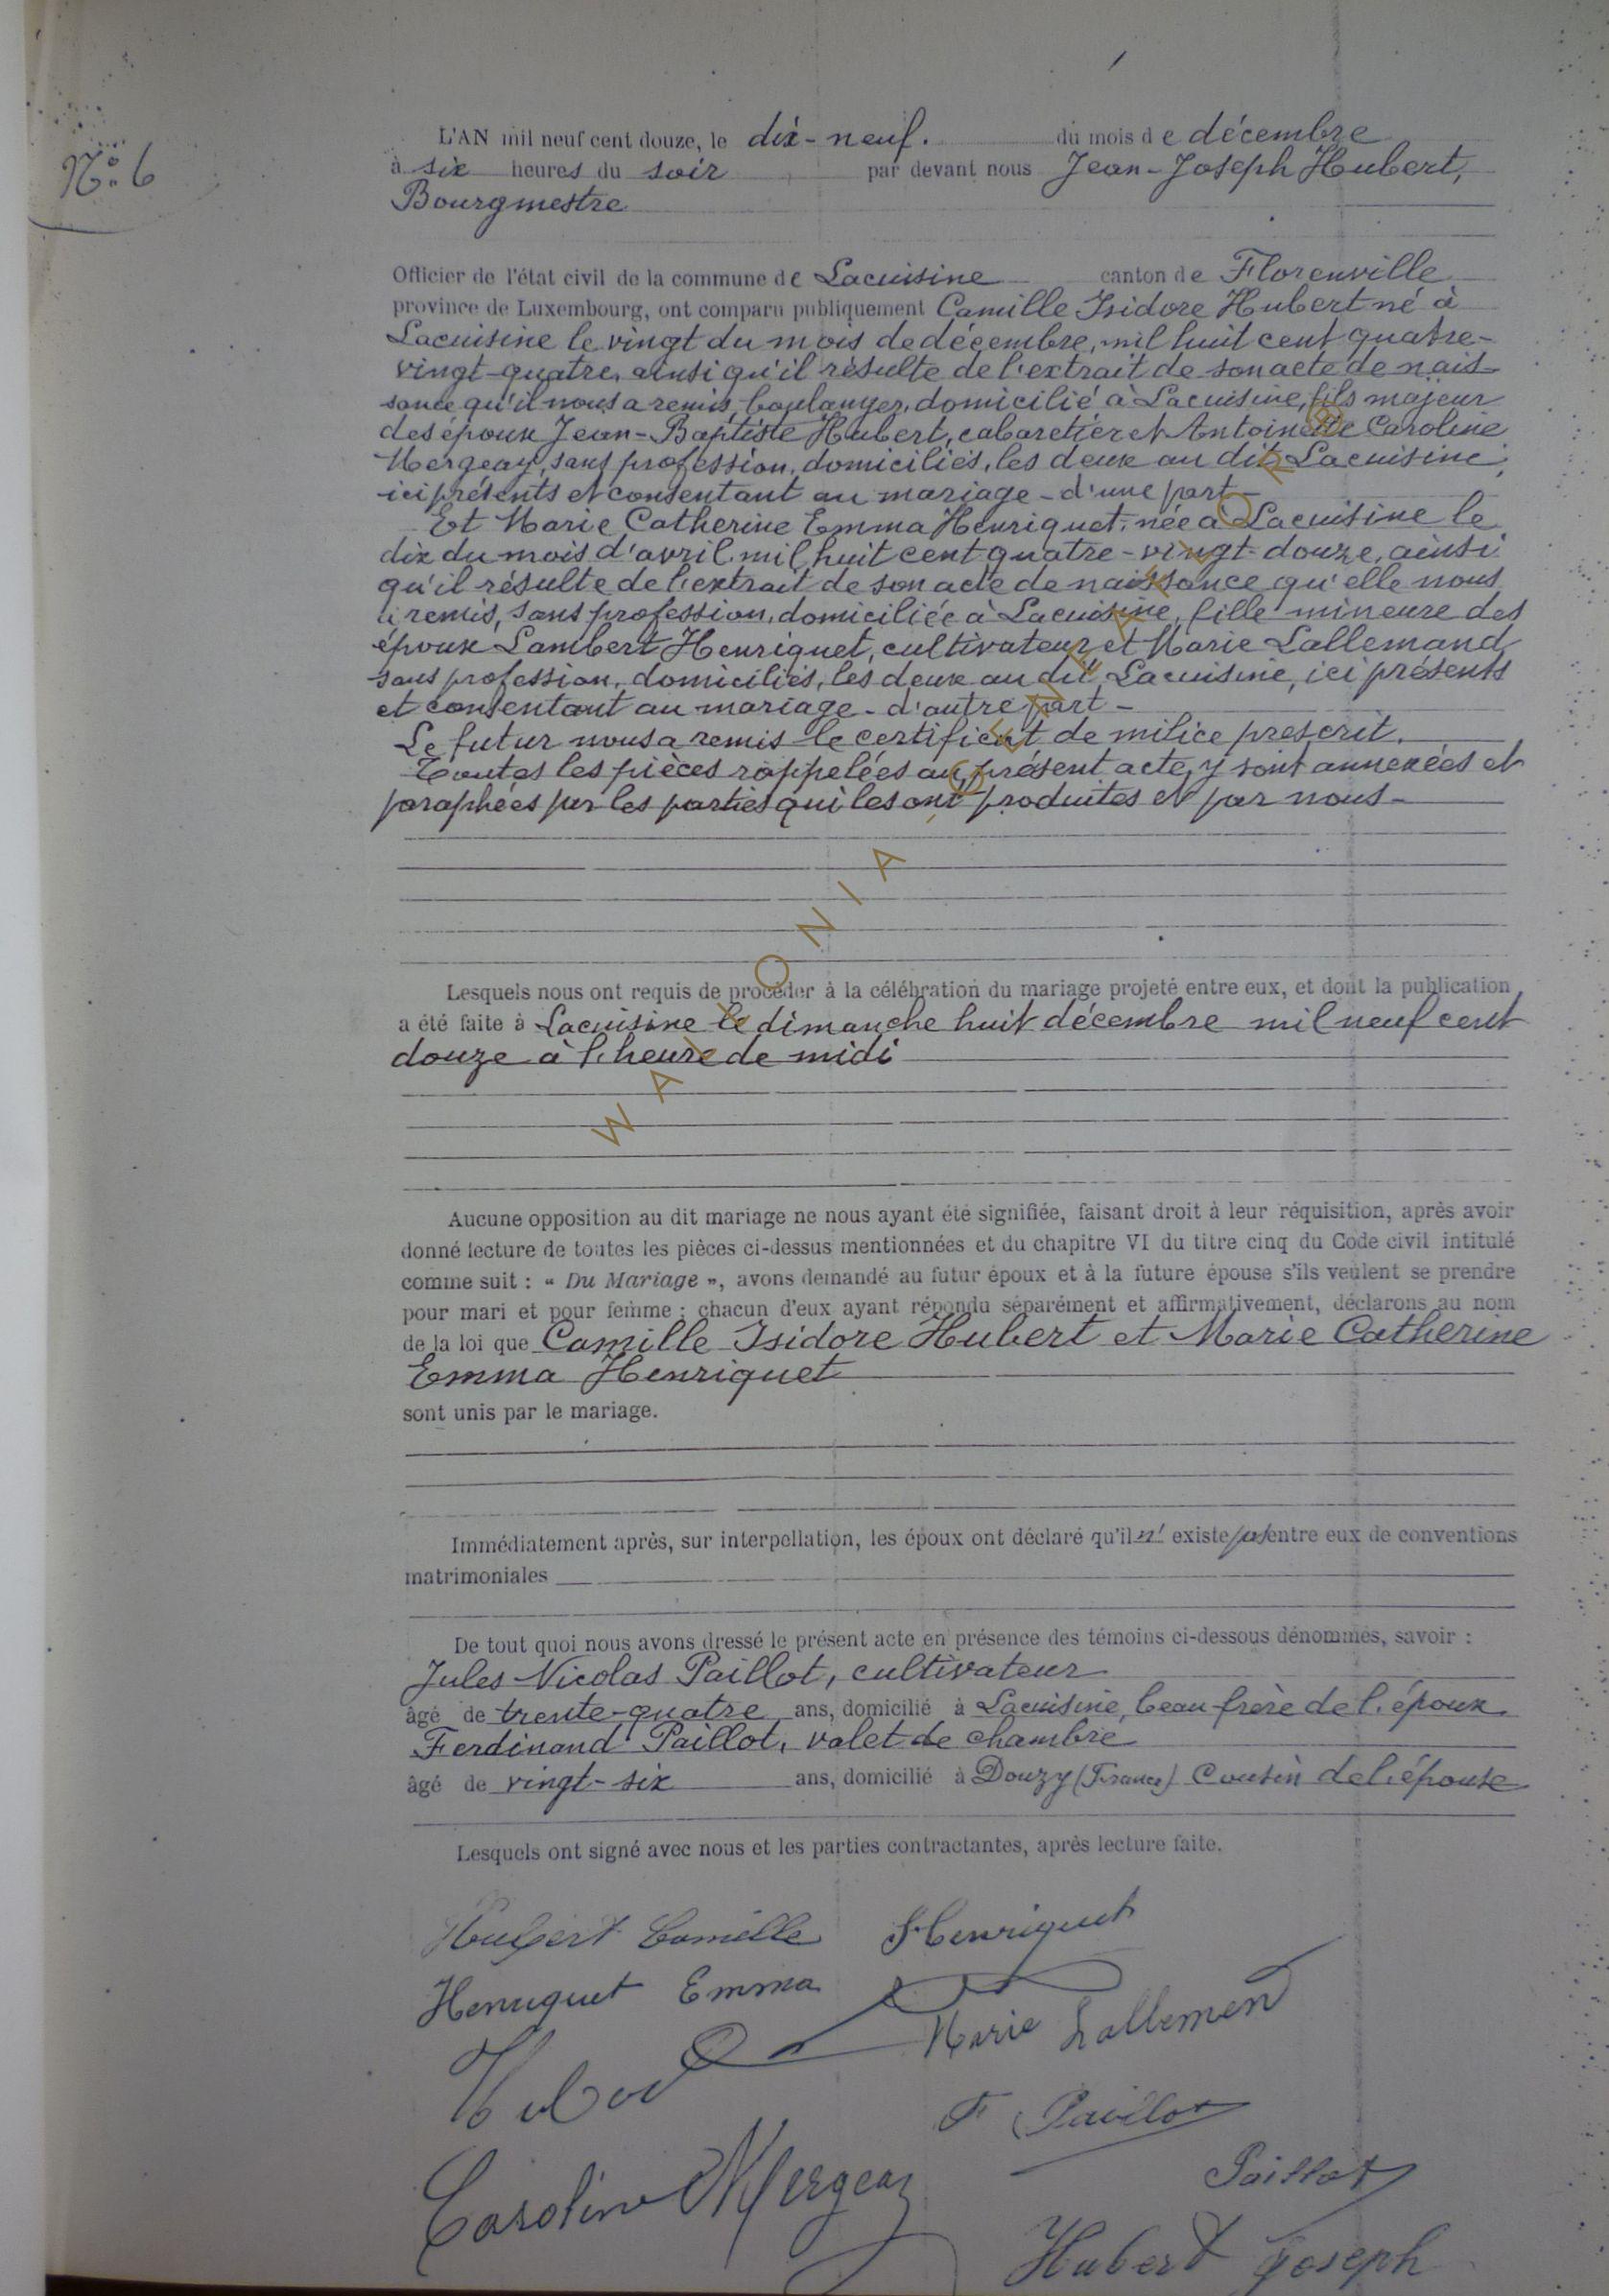 L'AN mil neuf cent douze, le dix-neuf. du mois de décembre
N°: 6
à six heures du soir par devant nous Jean-Joseph Hubert,
Bourgmestre
Officier de l'état civil de la commune de Lacuisine canton de Florenville
province de Luxembourg, ont comparu publiquement Camille Isidore Hubert né à
Lacuisine le vingt du mois de décembre, mil huit cent quatre-
vingt-quatre, ainsi qu'il résulte de l'extrait de son acte de nais-
sance qu'il nous a remis, boulanger, domicilié à Lacuisine, fils majeur
des époux Jean-Baptiste Hubert, cabaretier et Antoinette Caroline
Mergeay, sans profession, domiciliés, les deux au dit Lacuisine,
ici présents et consentant au mariage - d'une part -
Et Marie Catherine Emma Henriquet, née à Lacuisine le
dix du mois d'avril, mil huit cent quatre-vingt-douze, ainsi
qu'il résulte de l'extrait de son acte de naissance qu'elle nous
a remis, sans profession, domiciliée à Lacuisine, fille mineure des
époux Lambert Henriquet, cultivateur et Marie Lallemand
sans profession, domiciliés, les deux au dit Lacuisine, ici présents
et consentant au mariage - d'autre part -
Le futur nous a remis le certificat de milice prescrit.
Toutes les pièces rappelées au présent acte, y sont annexées et
paraphées par les parties qui les ont produites et par nous -
WALLONIA, GENEALOGIE
Lesquels nous ont requis de procéder à la célébration du mariage projeté entre eux, et dont la publication
a été faite à Lacuisine le dimanche huit décembre mil neuf cent
douze à l'heure de midi
Aucune opposition au dit mariage ne nous ayant été signifiée, faisant droit à leur réquisition, après avoir
donné lecture de toutes les pièces ci-dessus mentionnées et du chapitre VI du titre cinq du Code civil intitulé
comme suit : « Du Mariage », avons demandé au futur époux et à la future épouse s'ils veulent se prendre
pour mari et pour femme ; chacun d'eux ayant répondu séparément et affirmativement, déclarons au nom
de la loi que Camille Isidore Hubert et Marie Catherine
Emma Henriquet
sont unis par le mariage.
Immédiatement après, sur interpellation, les époux ont déclaré qu'il n' existe pas entre eux de conventions
matrimoniales
De tout quoi nous avons dressé le présent acte en présence des témoins ci-dessous dénommés, savoir :
Jules Nicolas Paillot, cultivateur
âgé de trente-quatre ans, domicilié à Lacuisine, beau frère de l'époux
Ferdinand Paillot, valet de chambre
âgé de vingt-six ans, domicilié à Douzy (France) Cousin de l'épouse
Lesquels ont signé avec nous et les parties contractantes, après lecture faite.
Hubert Camille Henriquet
Henriquet Emma
Marie Lallemend
Hubert
F Paillot
Caroline Mergeay
Paillot
Hubert Joseph